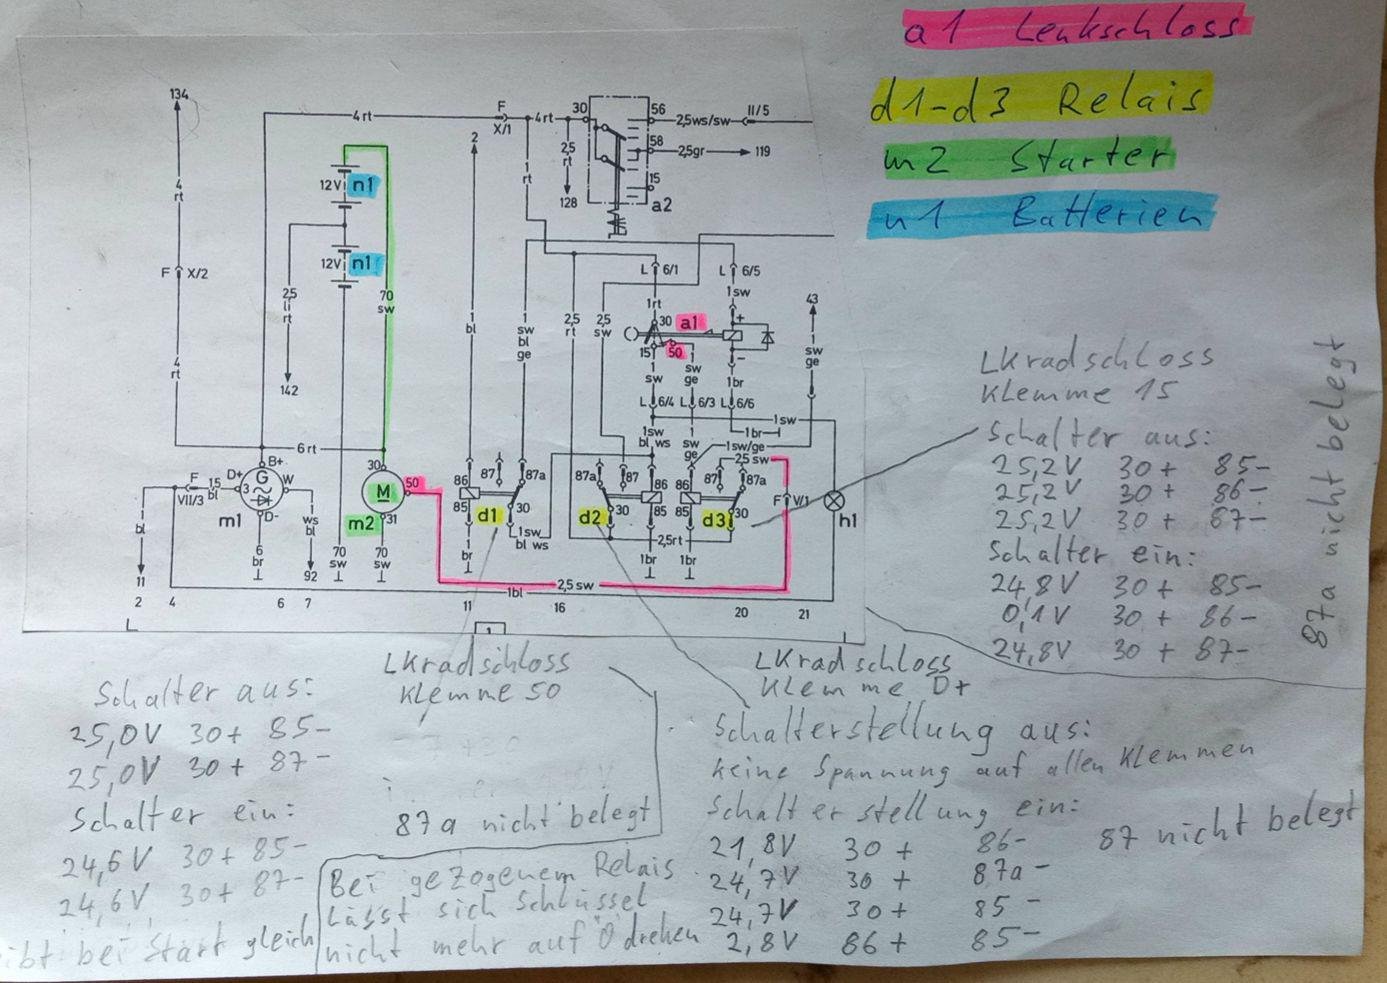 a1 Lenkschloss
d1-d3 Relais
m2 Starter
n1 Batterien
134
4 rt
F X/1
4 rt
30
56
2,5 ws/sw
II/5
58
2,5gr
119
15
a2
2,5 rt
128
2
1 rt
4 rt
12V n1
12V n1
F X/2
2,5 li rt
142
70 sw
4 rt
1 bl
1 sw bl ge
2,5 rt
2,5 sw
L 6/1
L 6/5
1rt
1sw
30 a1
+
15 50
-
43
1 sw ge
1 sw
sw ge
1br
L 6/4
L 6/3
L 6/6
1sw
1br
1sw bl ws
1 sw ge
1sw/ge
2,5 sw
6 rt
B+
D+
G
3
W
D-
m1
F VII/3
15 bl
bl
11
6 br
ws bl
92
30
M
50
m2
31
70 sw
70 sw
86
87
87a
85
d1
30
1sw bl ws
1 br
87a
87
86
d2
30
85
1br
86
87
87a
85
d3
30
1br
2,5rt
F V/1
h1
2,5 sw
1bl
2
4
6
7
11
16
20
21
1
LKradschloss
Klemme 15
Schalter aus:
25,2V 30+ 85-
25,2V 30+ 86-
25,2V 30+ 87-
Schalter ein:
24,8V 30+ 85-
0,1V 30+ 86-
24,8V 30+ 87-
87a nicht belegt
LKradschloss
Klemme 50
87a nicht belegt
Schalter aus:
25,0V 30+ 85-
25,0V 30+ 87-
Schalter ein:
24,6V 30+ 85-
24,6V 30+ 87-
ibt bei Start gleich
Bei gezogenem Relais
lässt sich Schlüssel
nicht mehr auf "0" drehen
LKradschloss
Klemme D+
Schalterstellung aus:
keine Spannung auf allen Klemmen
Schalterstellung ein:
21,8V 30+ 86-
24,7V 30+ 87a-
24,7V 30+ 85-
2,8V 86+ 85-
87 nicht belegt